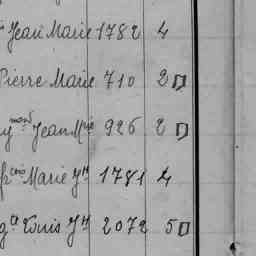 Jean Marie 1782 4
Pierre Marie 710 2
y mond Jean Mie 926 2
fcois Marie Jh 1781 4
Louis Jh 2072 5